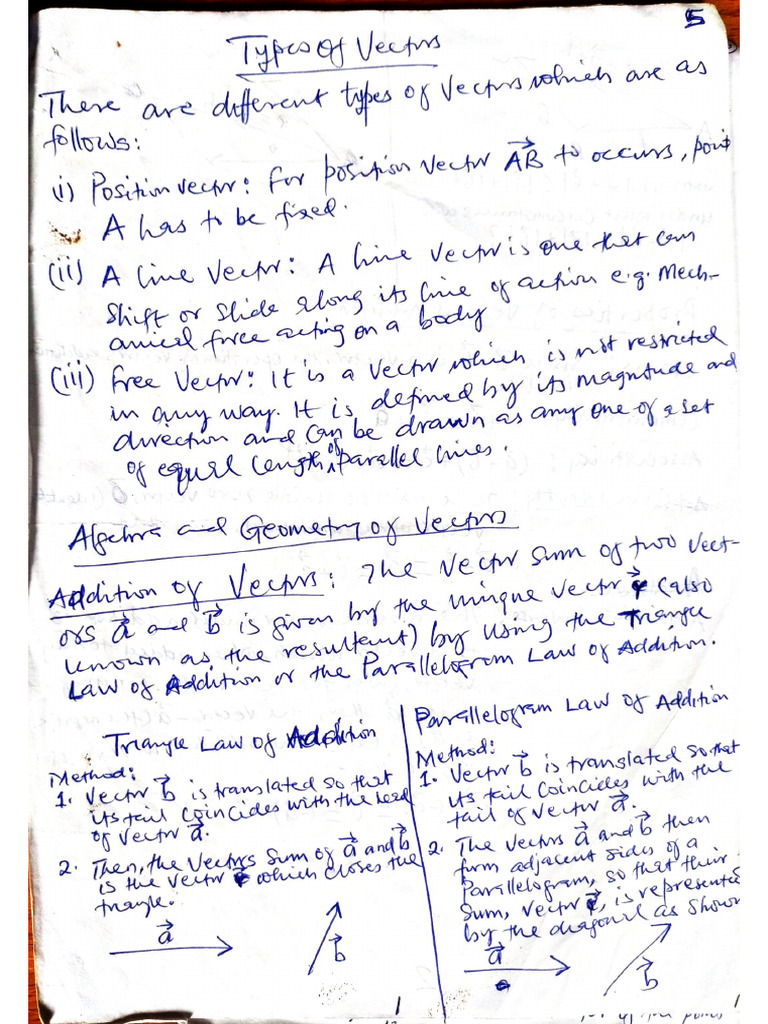 5
Types of Vectors
There are different types of Vectors which are as
follows:
(i) Position vector: For position vector AB→ to occurs, point
A has to be fixed.
(ii) A line Vector: A line Vector is one that can
Shift or slide along its line of action e.g. Mech-
anical force acting on a body
(iii) Free Vector: It is a vector which is not restricted
in any way. It is defined by its magnitude and
direction and can be drawn as any one of a set
of equal length of parallel lines.
Algebra and Geometry of Vectors
Addition of Vectors: The Vector sum of two vect-
ors a→ and b→ is given by the unique vector (also
known as the resultant) by using the Triangle
Law of Addition or the Parallelogram Law of Addition.
Triangle Law of Addition
Method:
1. Vector b→ is translated so that
its tail coincides with the head
of vector a→.
2. Then, the Vectors sum of a→ and b→
is the vector which closes the
triangle.
a→
b→
Parallelogram Law of Addition
Method:
1. Vector b→ is translated so that
its tail coincides with the
tail of vector a→.
2. The vectors a→ and b→ then
form adjacent sides of a
Parallelogram, so that their
Sum, vector, is represented
by the diagonal as shown
a→
b→